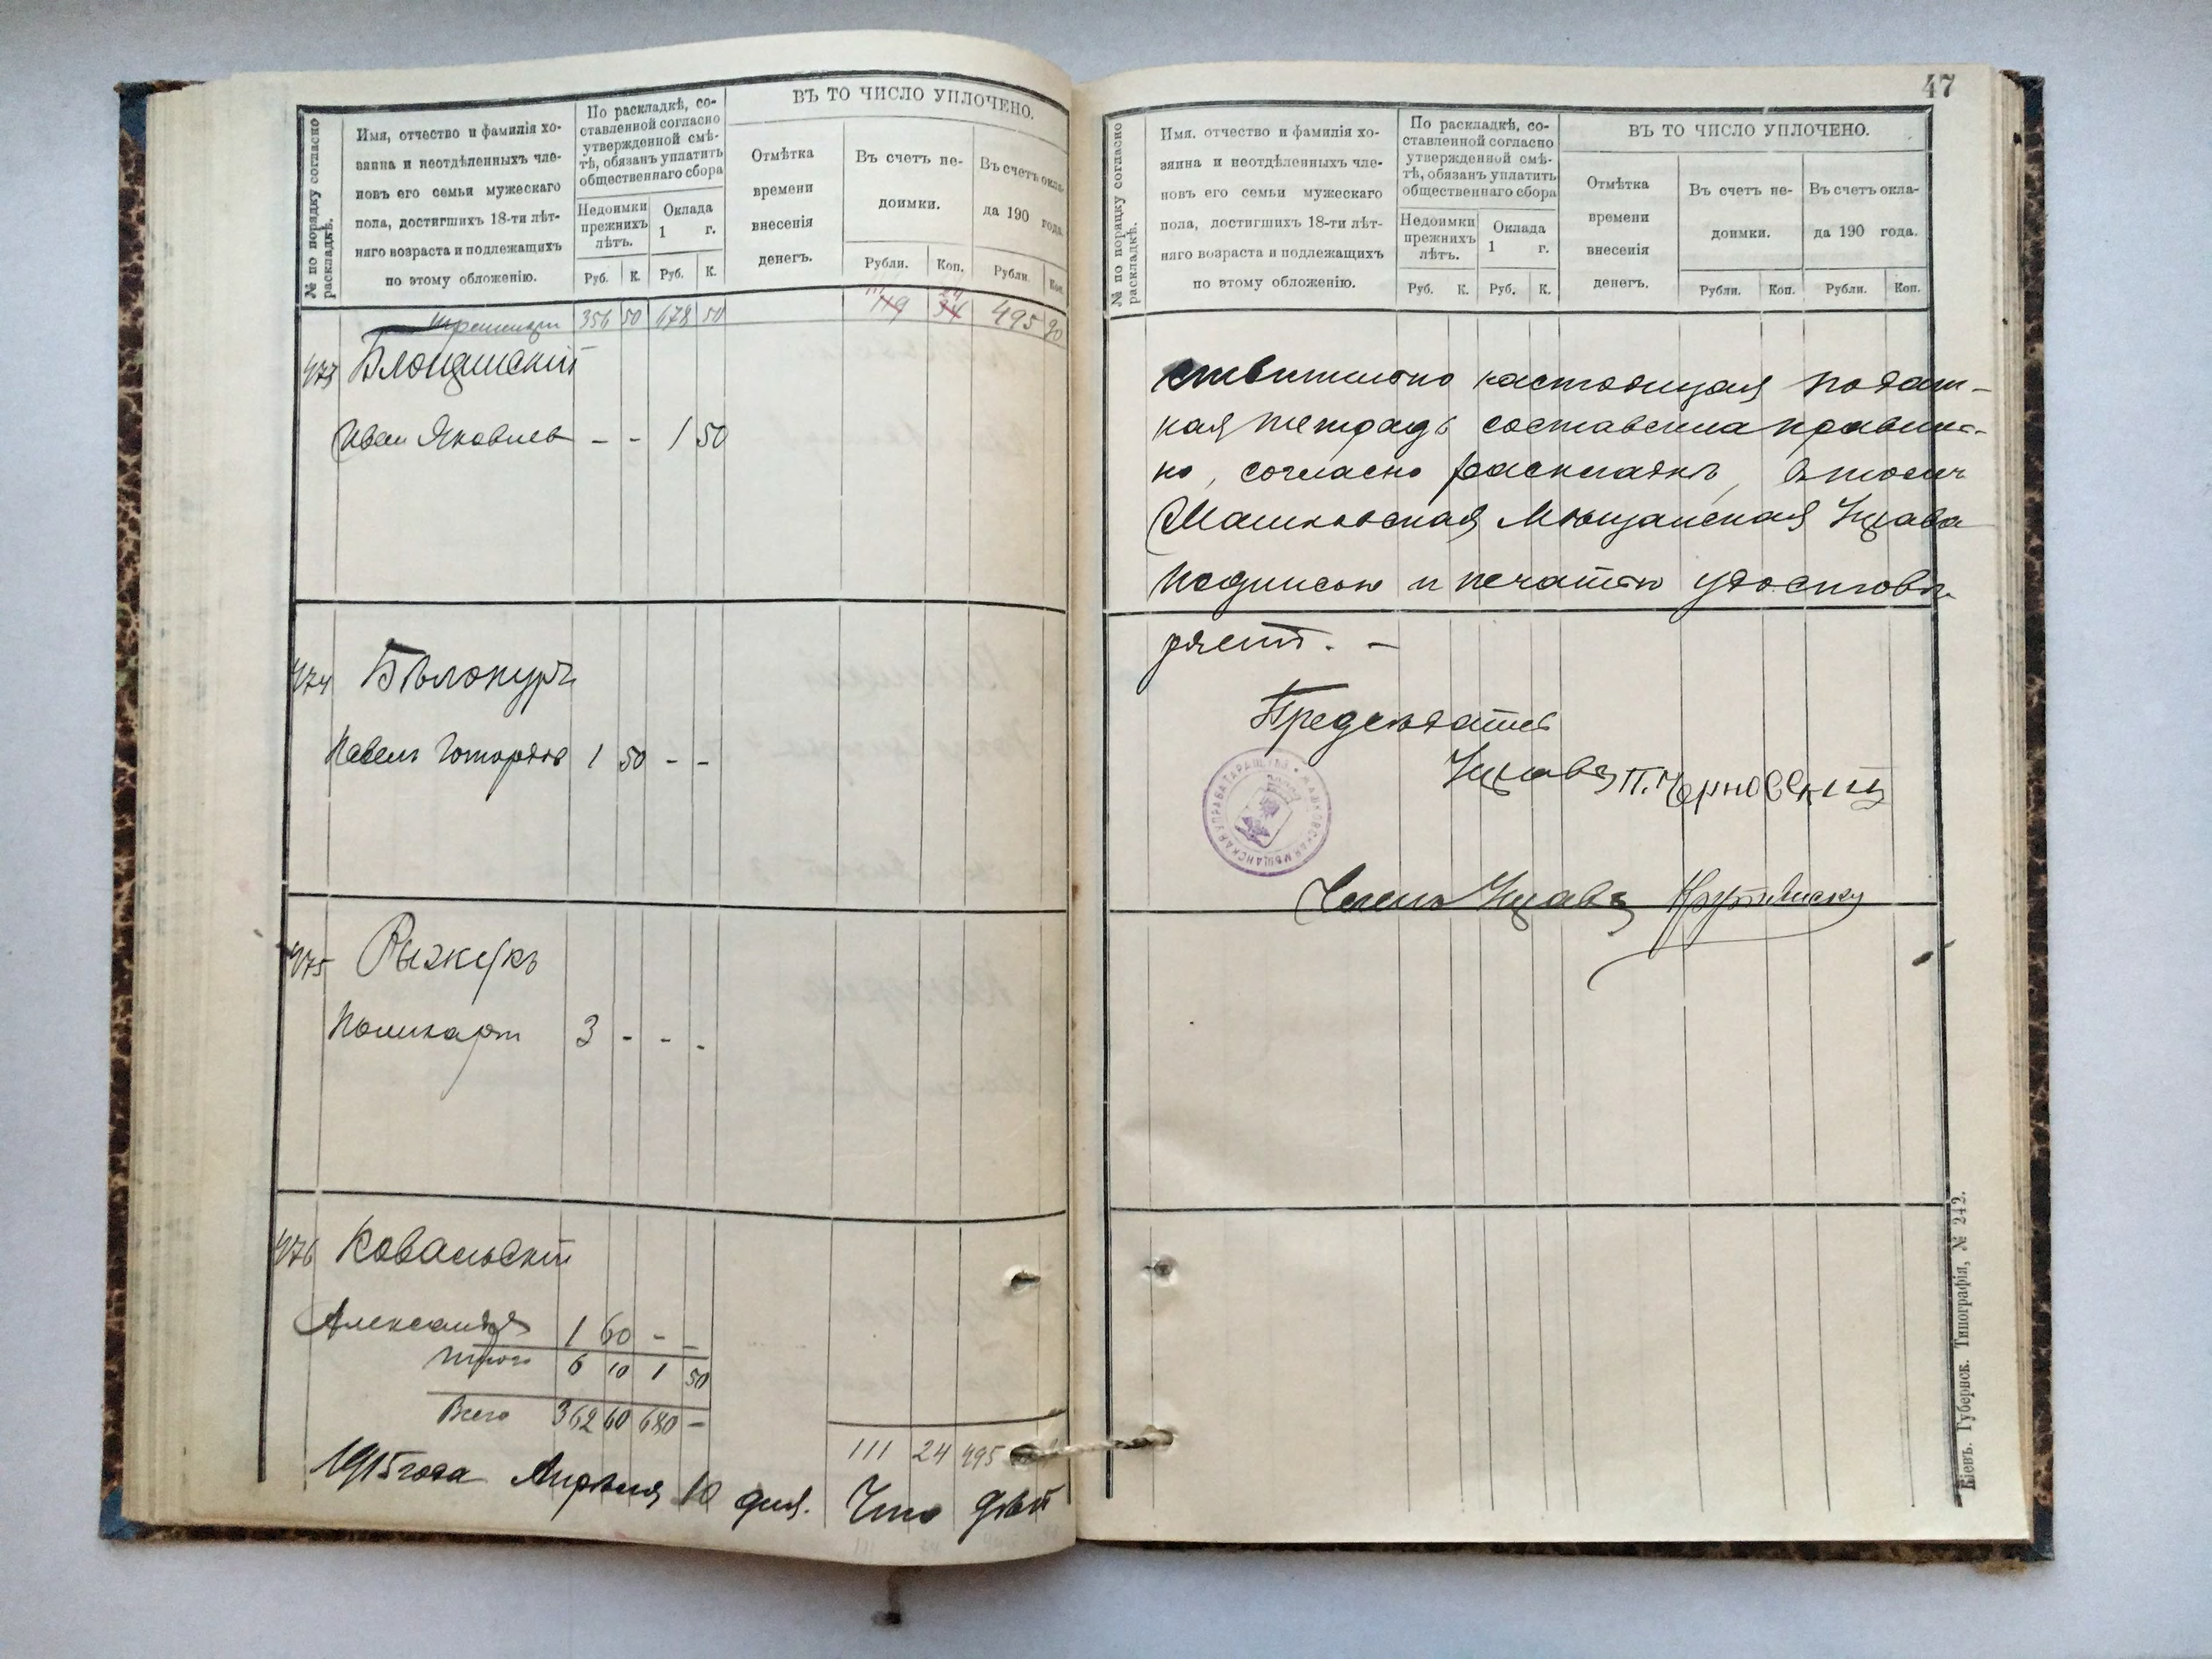 № по порядку согласно раскладкѣ.
Имя, отчество и фамилія хо-
зяина и неотдѣленныхъ чле-
новъ его семьи мужескаго
пола, достигшихъ 18-ти лѣт-
няго возраста и подлежащихъ
по этому обложенію.
По раскладкѣ, со-
ставленной согласно
утвержденной смѣ-
тѣ, обязанъ уплатить
общественнаго сбора
Недоимки
прежнихъ
лѣтъ.
Оклада
1 г.
Руб. К. Руб. К.
ВЪ ТО ЧИСЛО УПЛОЧЕНО.
Отмѣтка
времени
внесенія
денегъ.
Въ счетъ не-
доимки.
Въ счетъ окла-
да 190 года.
Рубли. Коп. Рубли. Коп.
356 50 678 50 111 24 495 90
119 34
473 Блощинскій
Иван Яковлев - - 1 50
474 Бѣлокуръ
Павелъ 1 50 - -
475 Рыжукъ
Поликарп 3 - - -
476 Ковальскій
Александр 1 60 - -
Итого 6 10 1 50
Всего 362 60 680 -
111 24 495
1915 года Апрѣля 10 дня. Что дѣй
47
№ по порядку согласно раскладкѣ.
Имя, отчество и фамилія хо-
зяина и неотдѣленныхъ чле-
новъ его семьи мужескаго
пола, достигшихъ 18-ти лѣт-
няго возраста и подлежащихъ
по этому обложенію.
По раскладкѣ, со-
ставленной согласно
утвержденной смѣ-
тѣ, обязанъ уплатить
общественнаго сбора
Недоимки
прежнихъ
лѣтъ.
Оклада
1 г.
Руб. К. Руб. К.
ВЪ ТО ЧИСЛО УПЛОЧЕНО.
Отмѣтка
времени
внесенія
денегъ.
Въ счетъ не-
доимки.
Въ счетъ окла-
да 190 года.
Рубли. Коп. Рубли. Коп.
ствительно настоящая подат-
ная тетрадь составлена правиль-
но, согласно раскладкѣ, в томъ
Машковская Мѣщанская Управа
подписью и печатью удостовѣ-
ряетъ. -
Предсѣдатель
Управы П. Черновскій
МѢЩАНСКАЯ УПРАВА
Членъ Управы
Кіевъ. Губернск. Типографія, № 242.